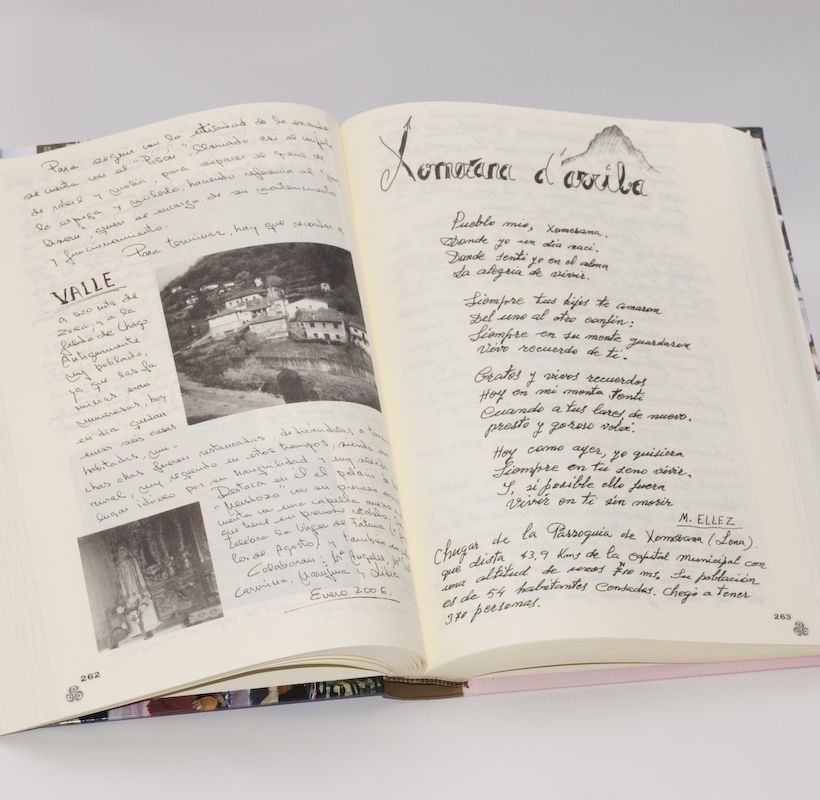 Para seguir con la de la
se cuenta con el "Pisón", llamado así
de rabil y para separar el grano de
la espiga y molerlo, haciendo referencia al
quien se encarga de su mantenimiento
y funcionamiento.
Para terminar, hay que recordar a
VALLE
a 500 mts de
y a la
falda de Chago.
Antiguamente
muy poblado,
ya que las
minas eran
numerosas, hoy
en día quedan
unas seis casas
habitadas, mu-
chas otras fueron restauradas, dedicándolas a
rural, muy seguido en estos tiempos, siendo
lugar idóneo por su tranquilidad y
Destaca en él el palacio de
"Mendoza" con su precioso
cuenta con una capilla
que tiene un precioso retablo,
celebra la Virgen de Fátima
les de Agosto) y también
Colaboran: Mª Angeles,
Carmina, y
Enero 2006.
262
Xomezana d'arriba
Pueblo mío, Xomezana.
Donde yo un día nací.
Donde sentí yo en el alma
La alegría de vivir.
Siempre tus hijos te amaron
Del uno al otro confín;
Siempre en su mente guardaron
Vivo recuerdo de ti.
Gratos y vivos recuerdos
Hoy en mi mente sentí
Cuando a tus lares de nuevo.
presto y gozoso volví.
Hoy como ayer, yo quisiera
Siempre en tu seno vivir.
Y, si posible ello fuera
Vivir en ti sin morir
M. ELLEZ
Lugar de la Parroquia de Xomezana (Lena).
que dista 43,9 Kms de la capital municipal con
una altitud de unos ms. Su población
es de 54 habitantes Censados. Chegó a tener
370 personas.
263